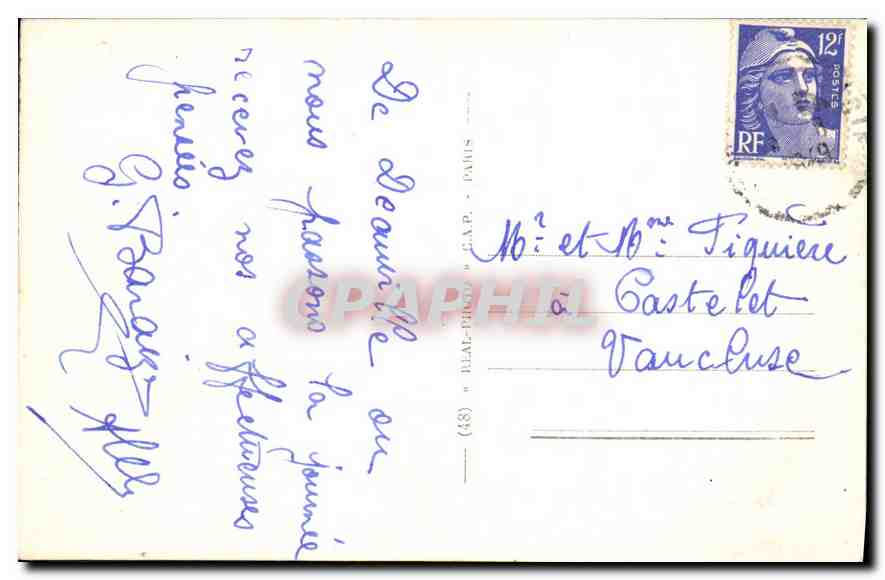 De Deauville ou
nous passons la journée
recevez nos affectueuses
pensées
(48) « REAL-PHOTO » C.A.P. - PARIS
12F
POSTES
RF
Mr. et Mme. Figuière
à Castelet
Vaucluse
CPAPHIL